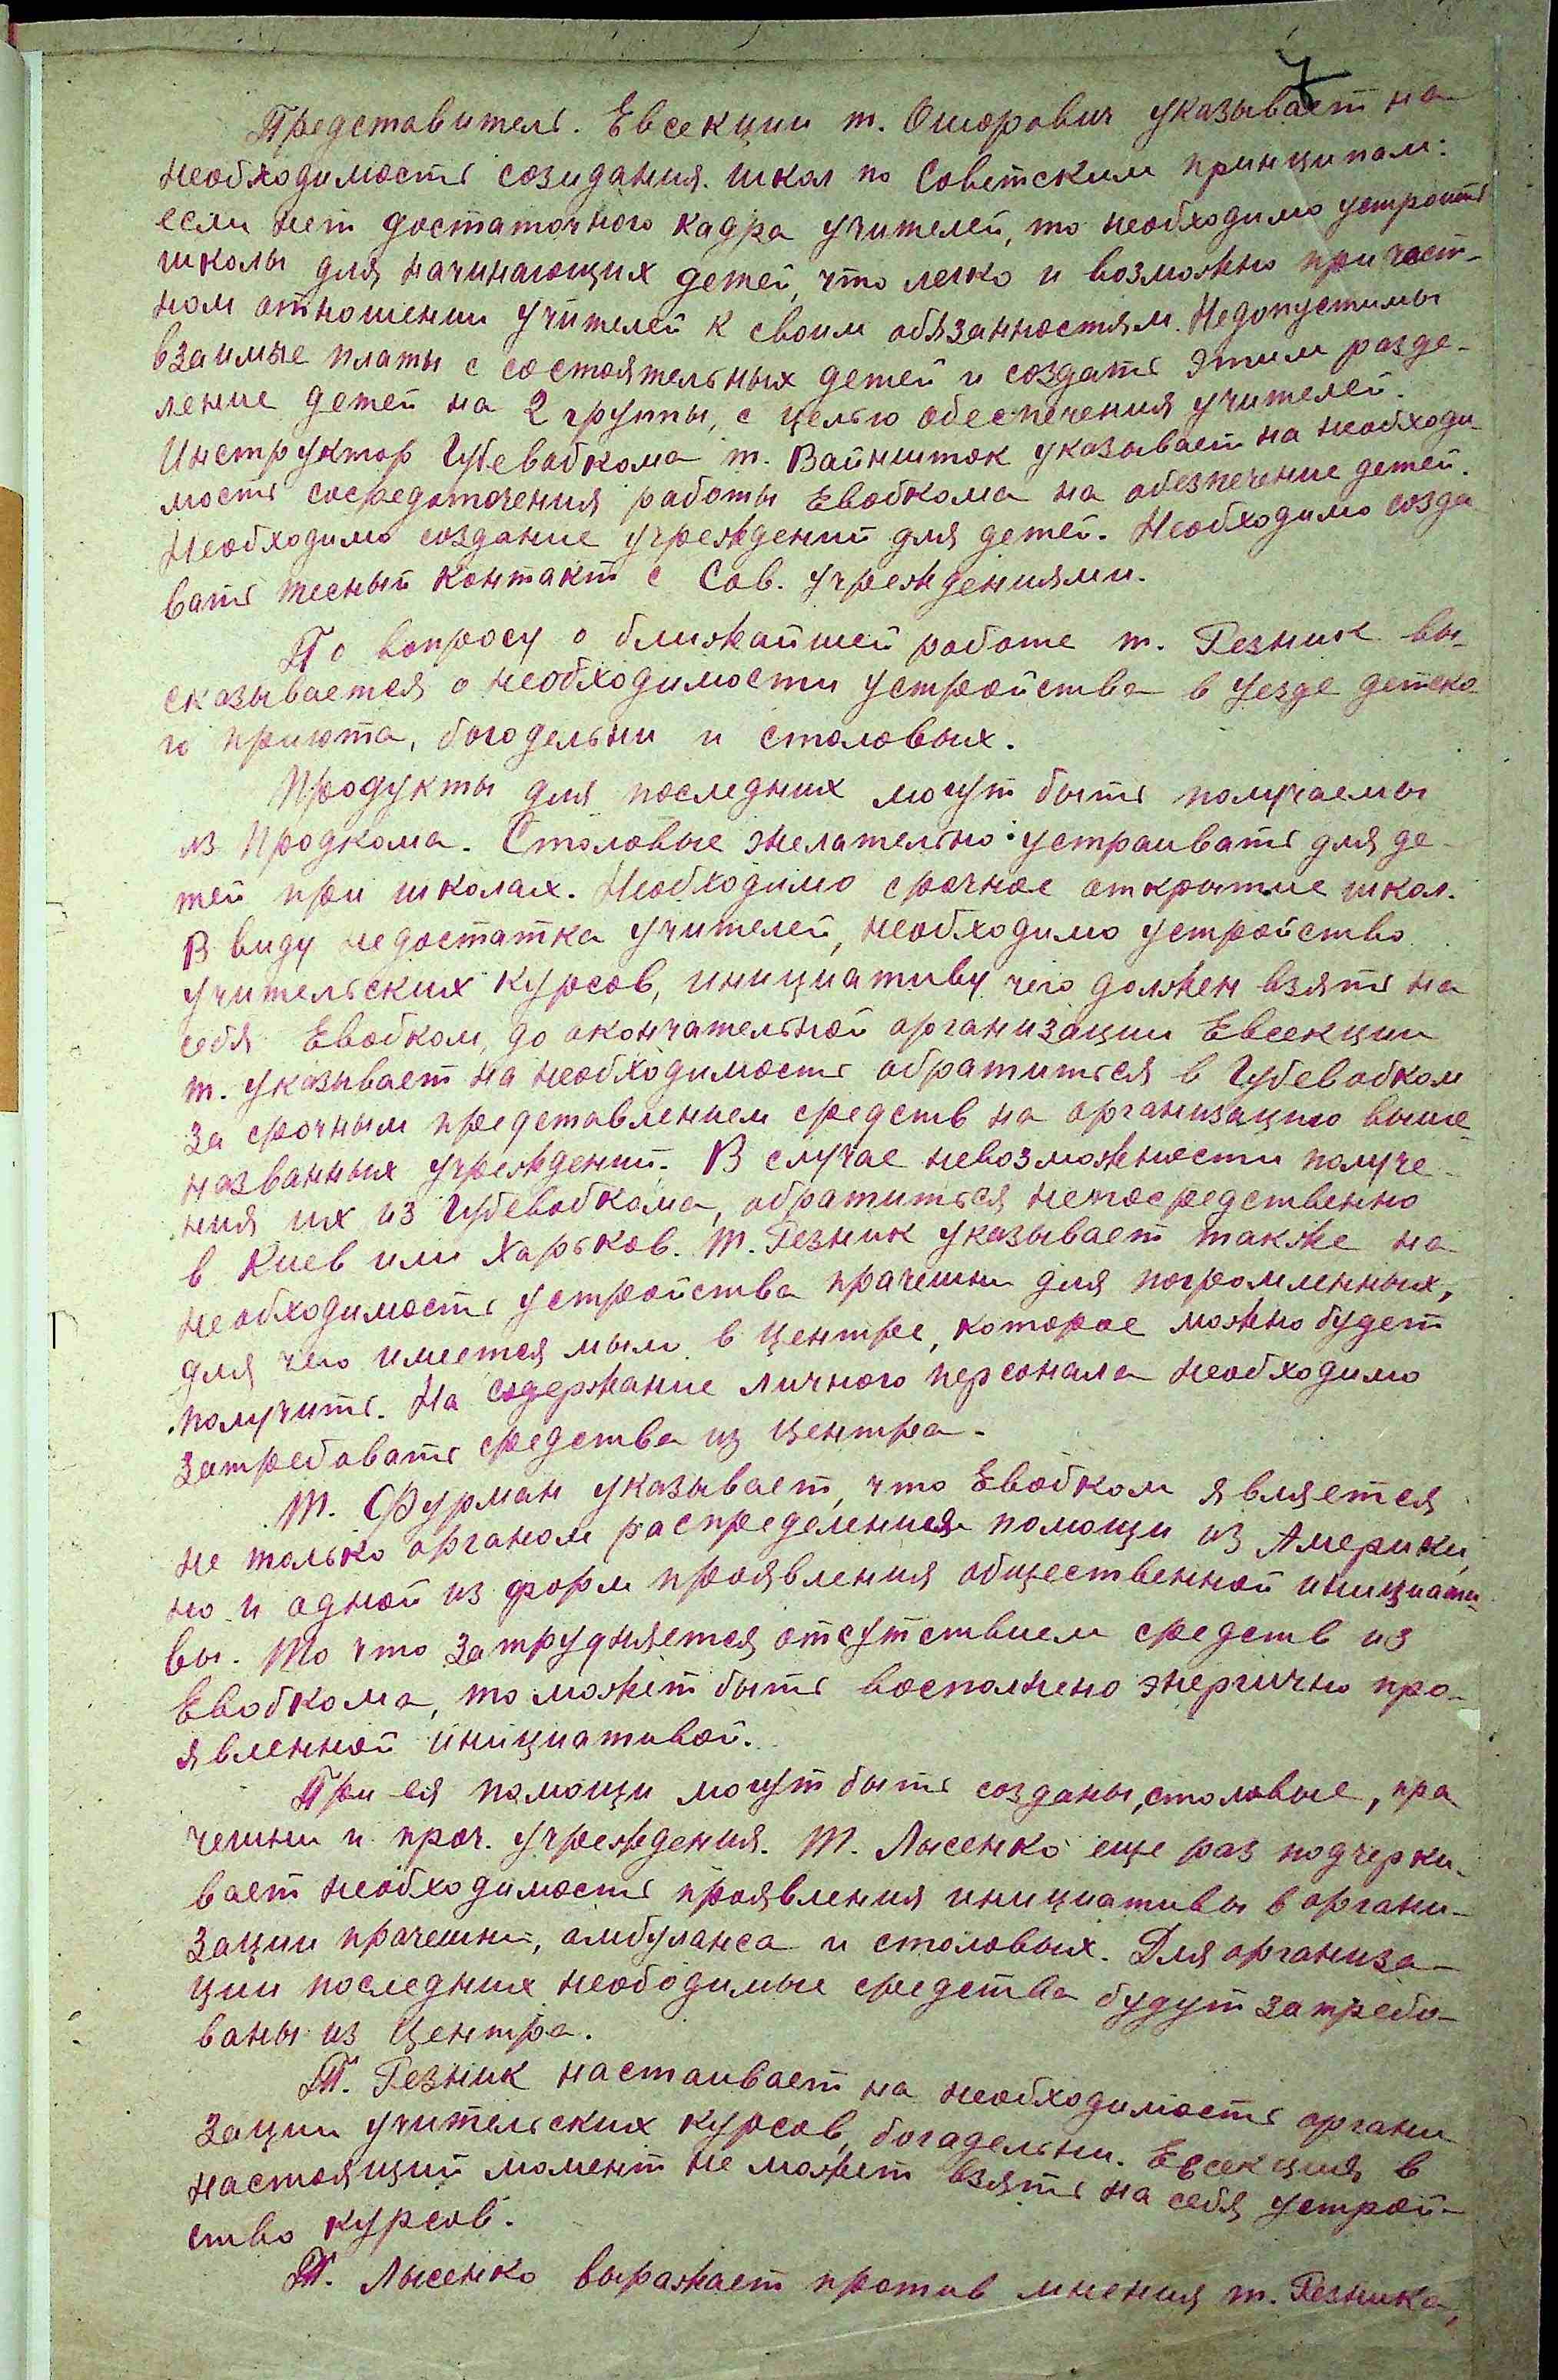 7
Представитель. Евсекции т. Ошорович указывает на
необходимость созидания. школ по Советским принципам:
если нет достаточного кадра учителей, то необходимо устроить
школы для начинающих детей, что легко и возможно при чест-
ном отношении учителей к своим обязанностям. Недопустимы
взаимые платы с состоятельных детей и создать этим разде-
ление детей на 2 группы, с целью обеспечения учителей.
Инструктор Губевобкома т. Вайншток указывает на необходи
мость сосредоточения работы Евобкома на обезпечение детей.
Необходимо создание учреждений для детей. Необходимо созда
вать тесный контакт с Сов. учреждениями.
По вопросу о ближайшей работе т. Резник вы-
сказывается о необходимости устройства в уезде детско
го приюта, богодельни и столовых.
Продукты для последних могут быть получаемы
из Продкома. Столовые желательно устраивать для де-
тей при школах. Необходимо срочное открытие школ.
В виду недостатка учителей, необходимо устройство
учительских курсов, инициативу чего должен взять на
себя Евобком, до окончательной организации Евсекции
т. указывает на необходимость обратиться в Губевобком
за срочным представлением средств на организацию выше-
названных учреждений. В случае невозможности получе-
ния их из Губевобкома, обратиться непосредственно
в Киев или Харьков. Т. Резник указывает также на
необходимость устройства прачешни для погромленных,
для чего имеется мыло в центре, которое можно будет
получить. На содержание личного персонала необходимо
затребовать средства из центра.
Т. Фурман указывает, что Евобком является
не только органом распределения помощи из Америки,
но и одной из форм проявления общественной инициати-
вы. То что затрудняется отсутствием средств из
Евобкома, то может быть восполнено энергично про-
явленной инициативой.
При ея помощи могут быть созданы, столовые, пра
чешни и проч. учреждения. Т. Лысенко еще раз подчерки-
вает необходимость проявления инициативы в органи-
зации прачешни, амбуланса и столовых. Для организа-
ции последних неободимые средства будут затребо-
ваны из центра.
Т. Резник настаивает на необходимость органи
зации учительских курсов, богадельни. Евсекция в
настоящий момент не может взять на себя устрой-
ство курсов.
Т. Лысенко выражает против мнения т. Резника,